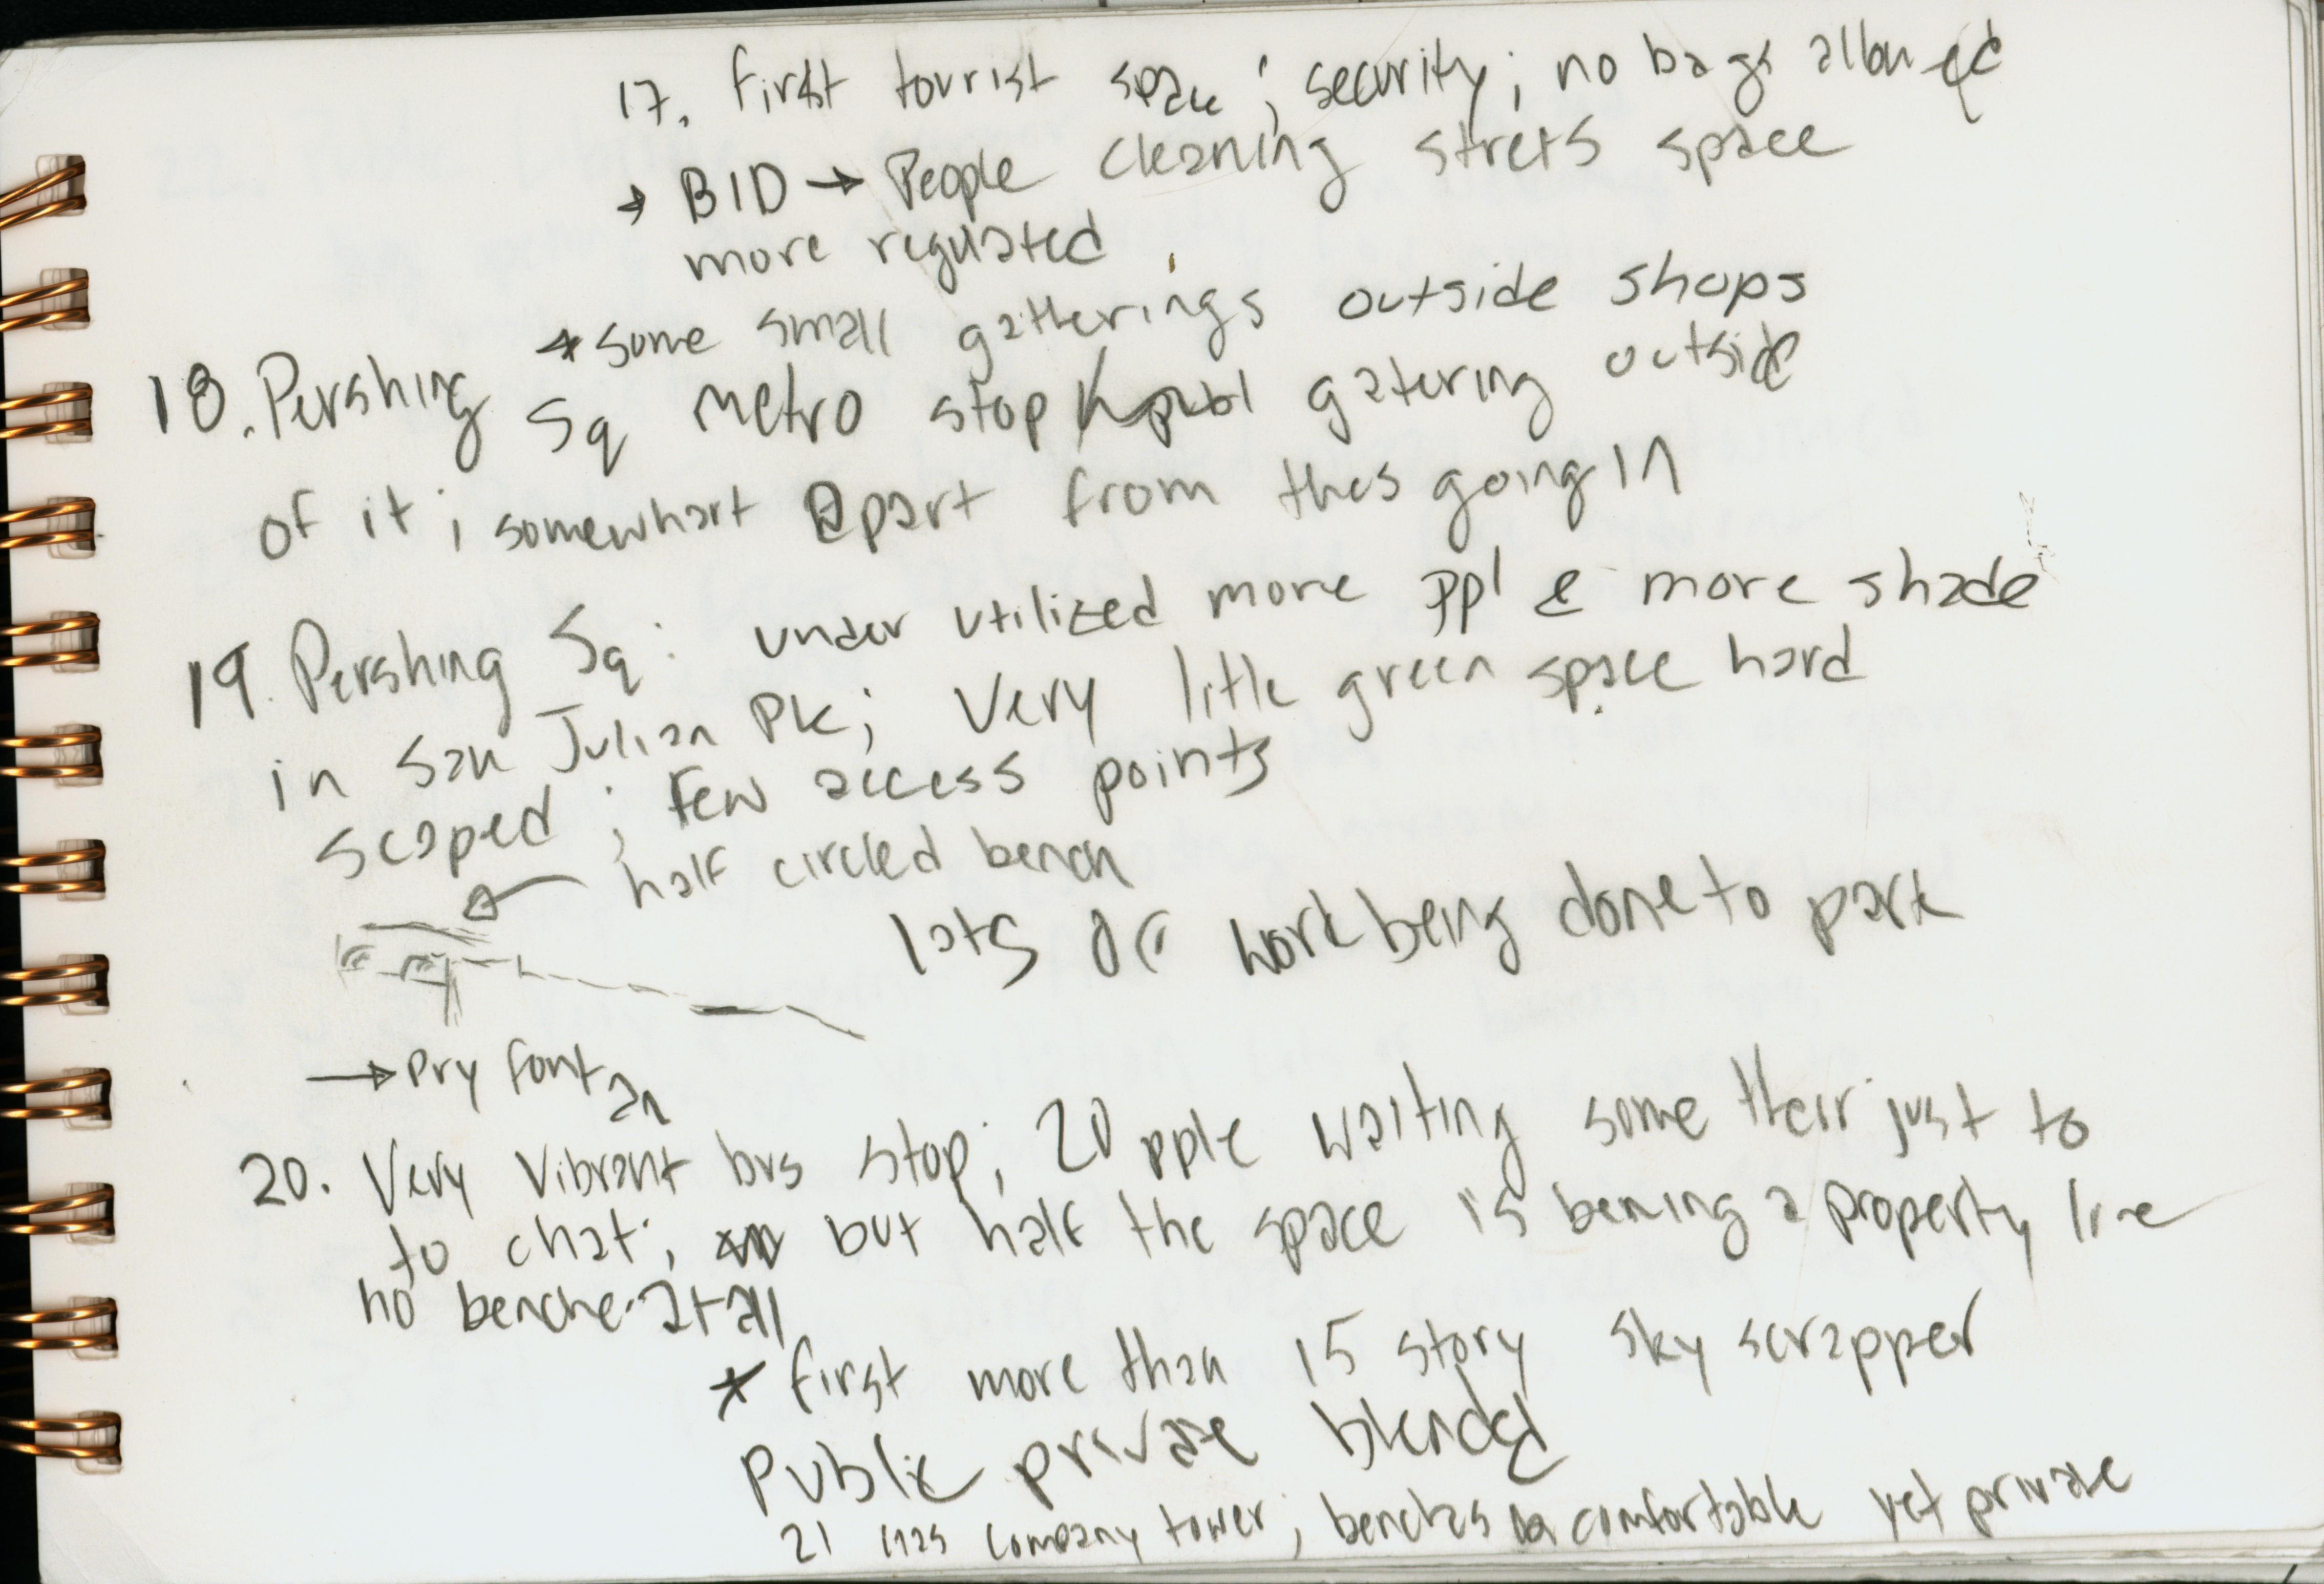 17. first tourist space ; security ; no bags allowed
→ BID → People cleaning strets space
more regulated
* some small gatherings outside shops
18. Pershing Sq metro stop gatering outside
of it ; somewhart apart from thes going in
19. Pershing Sq : under utilized more ppl & more shade
in San Julian Pk ; Very little green space hard
scaped ; few access points
half circled bench
lots of work being done to park
→ Dry fontan
20. Very Vibrant bus stop ; 20 pple waiting some their just to
to chat ; but half the space is a property line
no benche at all
* first more than 15 story sky scrapper
Public private blended
21 Gas Company tower ; benches comfortable yet private